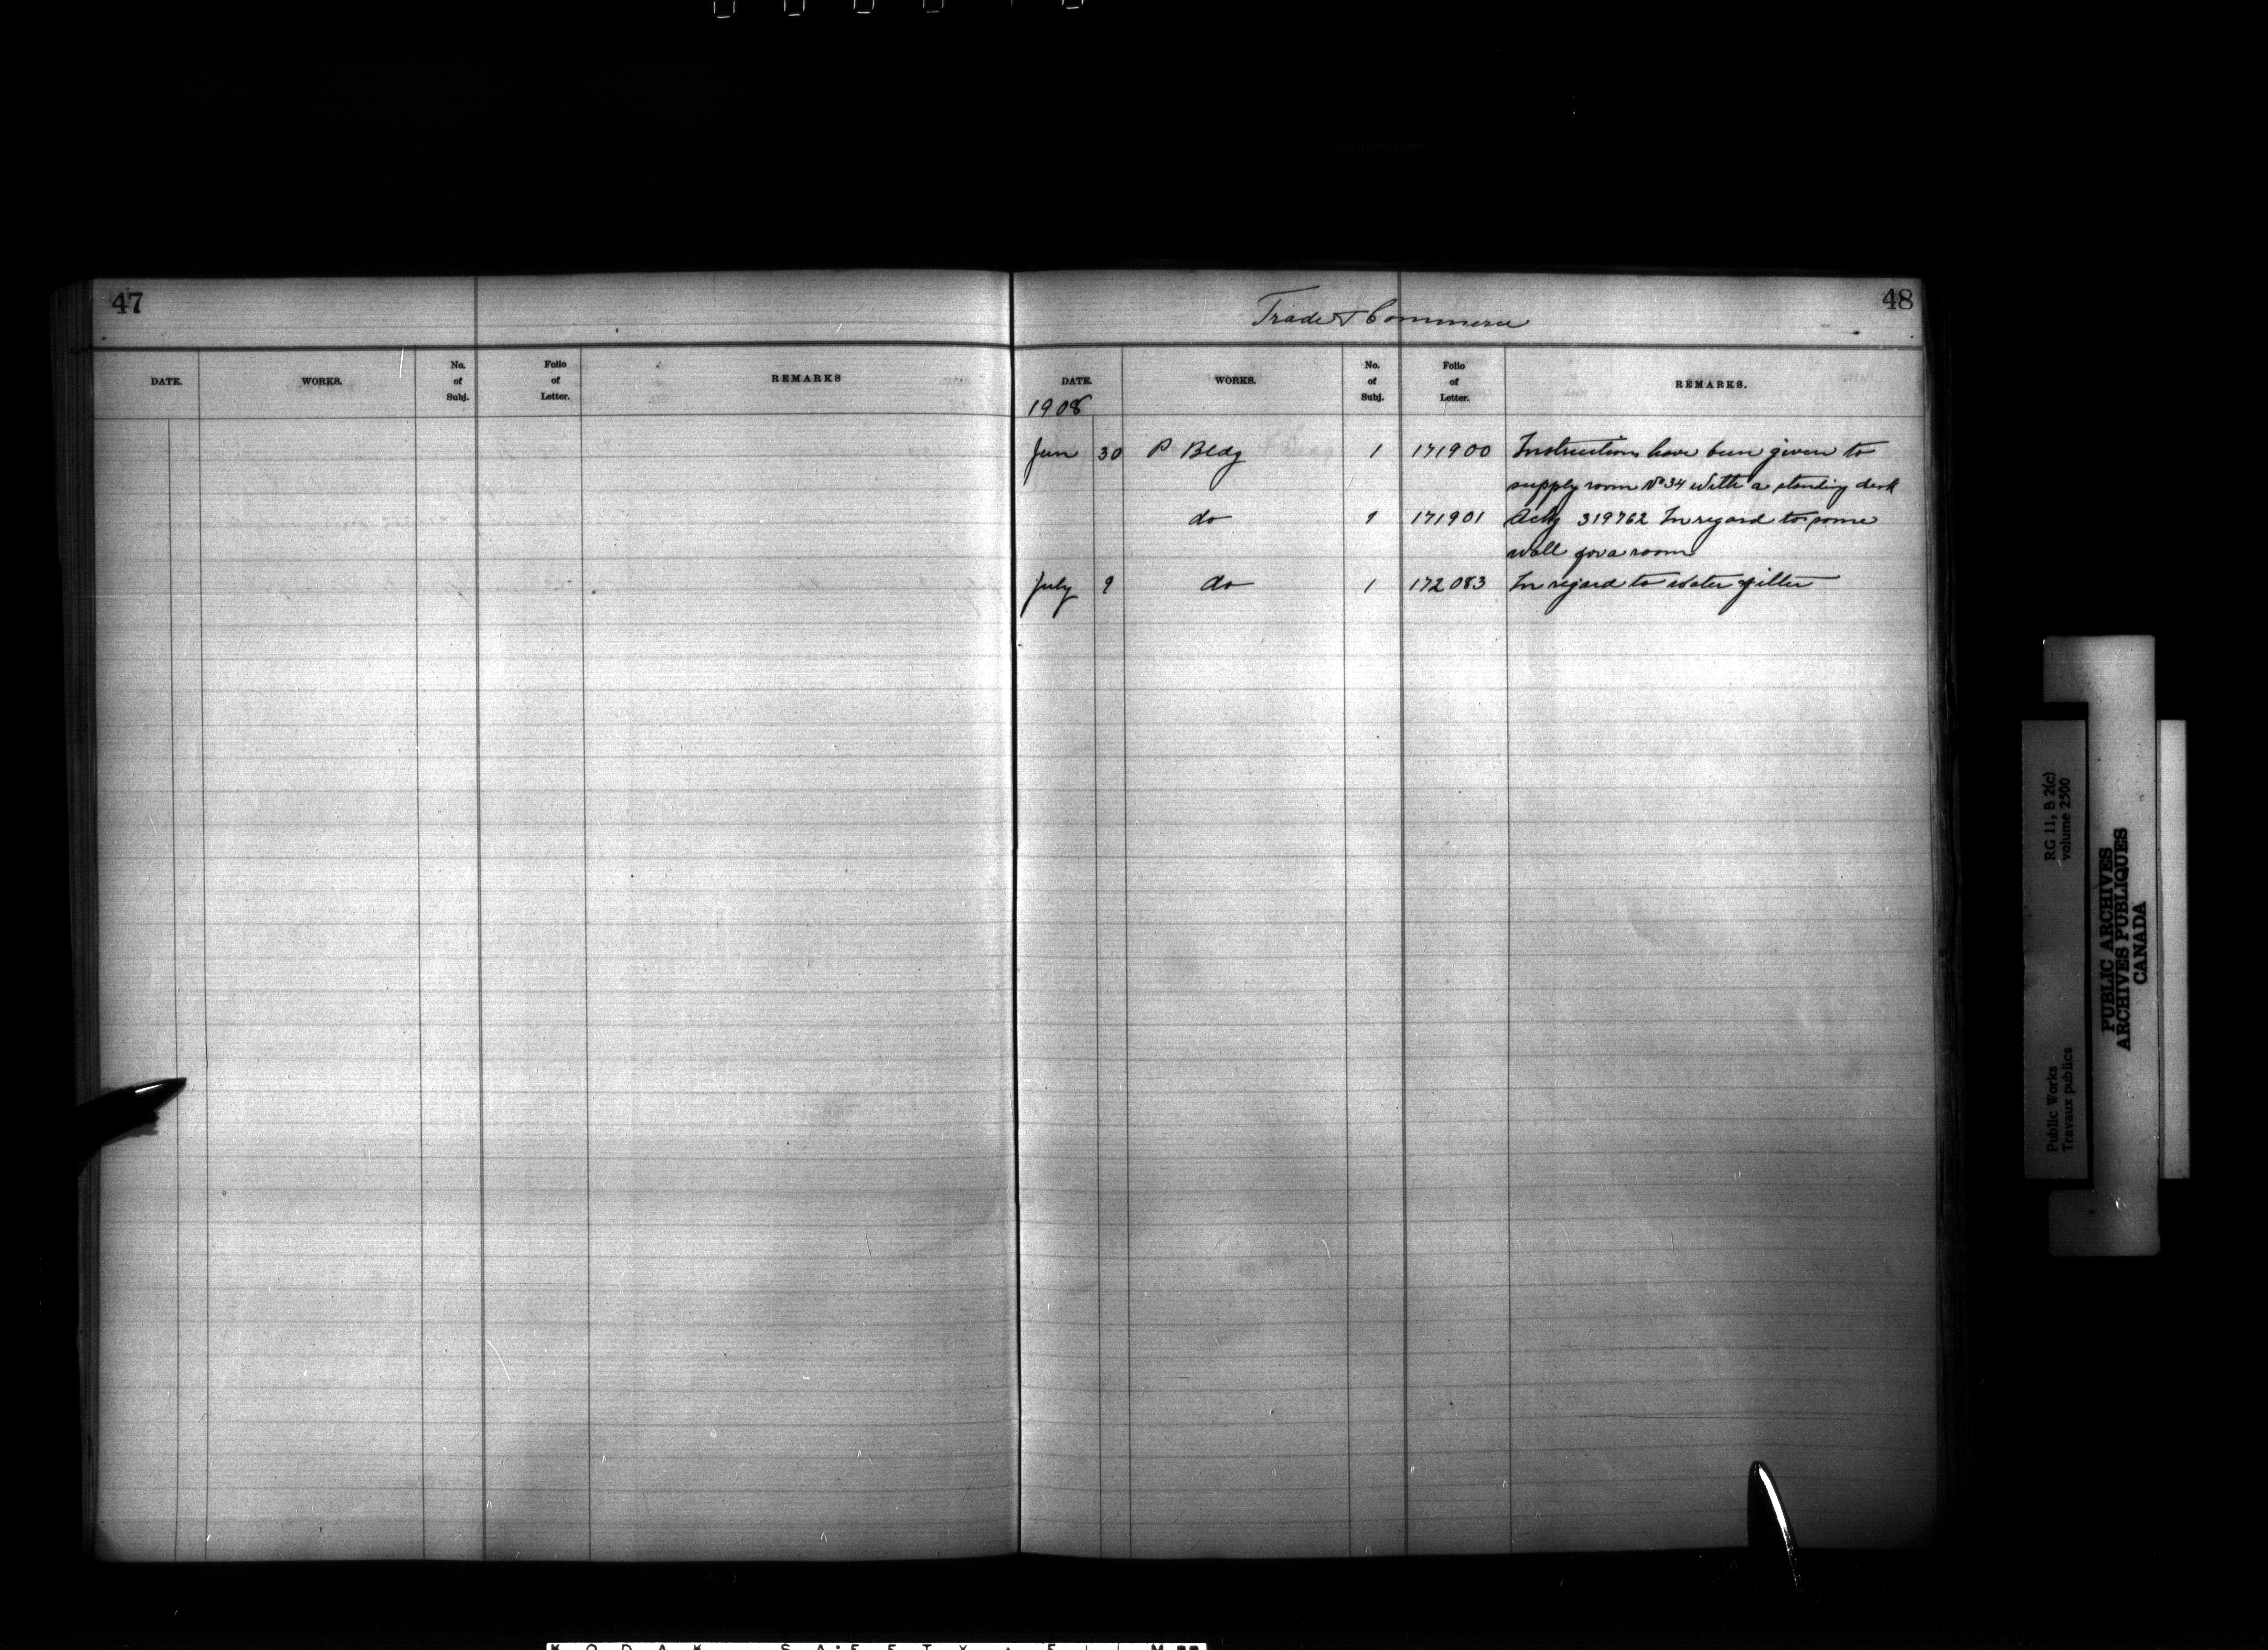 47
DATE. WORKS. No. of Subj. Folio of Letter. REMARKS
48
Trade & Commerce
DATE. WORKS. No. of Subj. Folio of Letter. REMARKS.
1908
Jun 30 P Bldg 1 171900 Instructions have been given to
supply room No 34 with a standing desk
do 1 171901 Ackg 319762 In regard to some
wall for a room
July 9 do 1 172083 In regard to water filter
Public Works
Travaux publics
RG 11, B 2(c)
volume 2500
PUBLIC ARCHIVES
ARCHIVES PUBLIQUES
CANADA